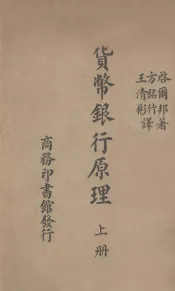 啓爾邦著
方銘竹
王清彬譯
貨幣銀行原理
上册
商務印書館發行